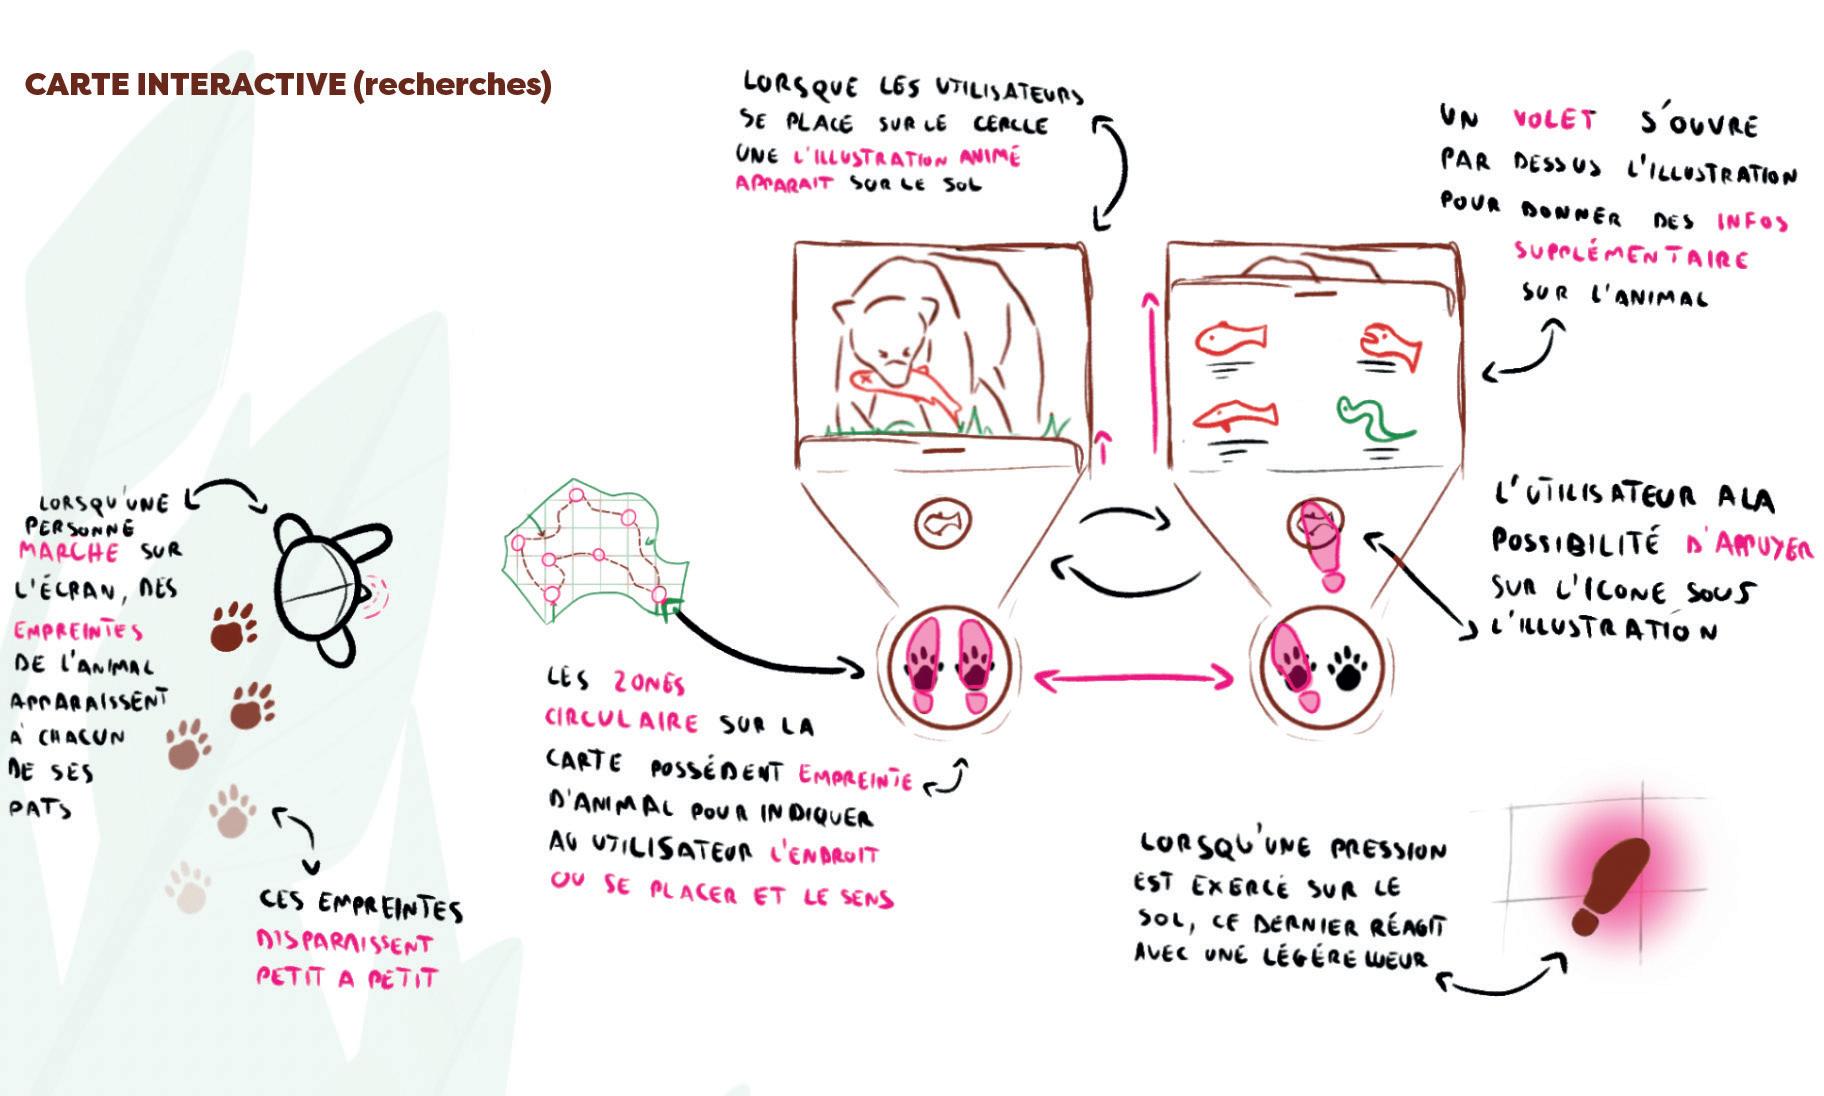 CARTE INTERACTIVE (recherches)
LORSQUE LES UTILISATEURS
SE PLACE SUR LE CERCLE
UNE L'ILLUSTRATION ANIMÉ
APPARAIT SUR LE SOL
UN VOLET S'OUVRE
PAR DESSUS L'ILLUSTRATION
POUR DONNER DES INFOS
SUPPLÉMENTAIRE
SUR L'ANIMAL
LORSQU'UNE
PERSONNE
MARCHE SUR
L'ÉCRAN, DES
EMPREINTES
DE L'ANIMAL
APPARAISSENT
À CHACUN
DE SES
PATS
CES EMPREINTES
DISPARAISSENT
PETIT A PETIT
LES ZONES
CIRCULAIRE SUR LA
CARTE POSSÉDENT EMPREINTE
D'ANIMAL POUR INDIQUER
AU UTILISATEUR L'ENDROIT
OU SE PLACER ET LE SENS
L'UTILISATEUR A LA
POSSIBILITÉ D'APPUYER
SUR L'ICONE SOUS
L'ILLUSTRATION
LORSQU'UNE PRESSION
EST EXERCÉ SUR LE
SOL, CE DERNIER RÉAGIT
AVEC UNE LÉGÉRE LUEUR